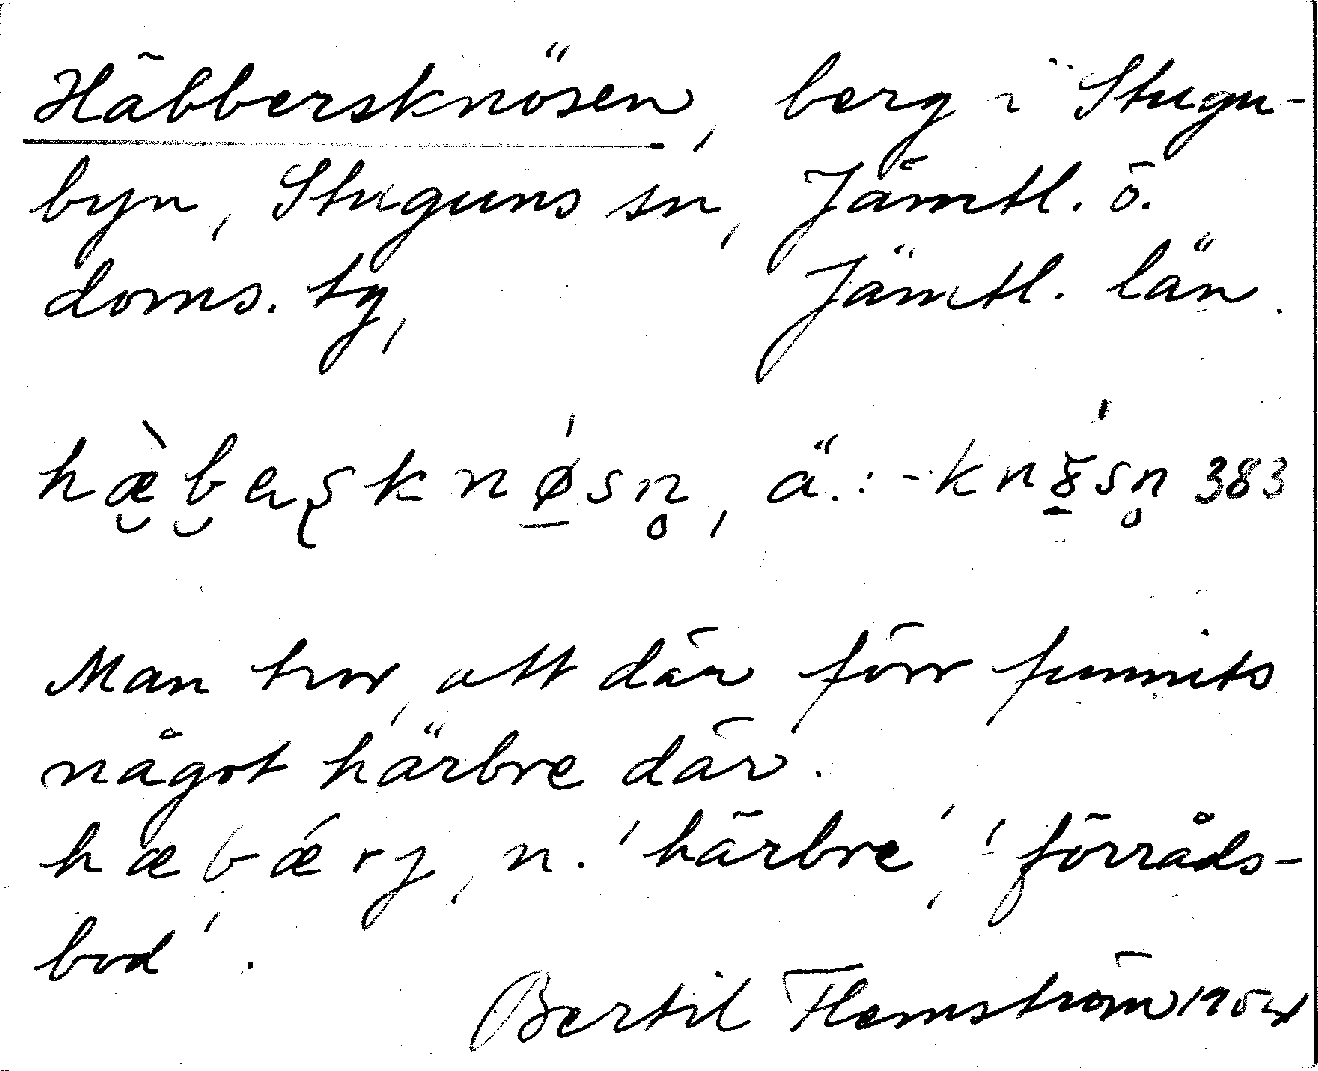 Häbbersknösen, berg i Stugu-
byn, Stuguns sn, Jämtl. ö.
doms. tg, Jämtl. län.
hæ̀baʂknǿsn̥, ä.: -knɤ́sn̥ 383
Man tror, att där förr funnits
något härbre där.
hæbǽrj, n. 'härbre', 'förråds-
bod'.
Bertil Flemström 1954